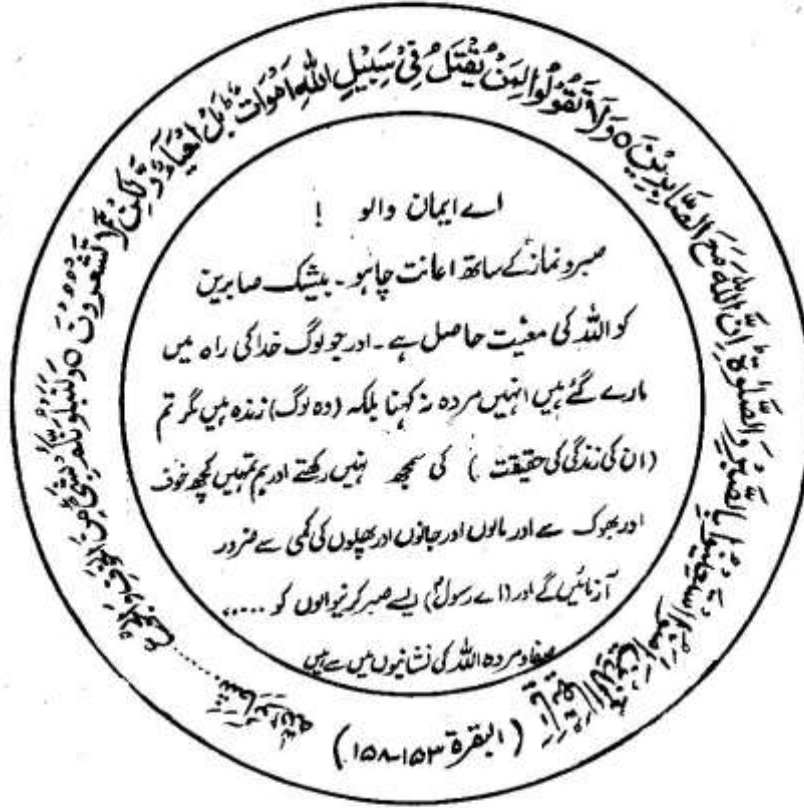 يٰٓاَيُّهَا الَّذِيْنَ اٰمَنُوا اسْتَعِيْنُوْا بِالصَّبْرِ وَالصَّلٰوةِ اِنَّ اللّٰهَ مَعَ الصّٰبِرِيْنَ ○ وَلَا تَقُوْلُوْا لِمَنْ يُّقْتَلُ فِيْ سَبِيْلِ اللّٰهِ اَمْوَاتٌ بَلْ اَحْيَاءٌ وَّلٰكِنْ لَّا تَشْعُرُوْنَ ○ وَلَنَبْلُوَنَّكُمْ بِشَيْءٍ مِّنَ الْخَوْفِ وَالْجُوْعِ ....... شَعَآئِرِ اللّٰهِ
(البقرة ۱۵۳-۱۵۸)
اے ایمان والو !
صبر و نماز کے ساتھ اعانت چاہو ۔ بیشک صابرین
کو اللہ کی معیّت حاصل ہے ۔ اور جو لوگ خدا کی راہ میں
مارے گئے ہیں انہیں مردہ نہ کہنا بلکہ (وہ لوگ) زندہ ہیں مگر تم
(ان کی زندگی کی حقیقت ) کی سمجھ نہیں رکھتے اور ہم تمہیں کچھ خوف
اور بھوک سے اور مالوں اور جانوں اور پھلوں کی کمی سے ضرور
آزمائیں گے اور (اے رسولؐ) ایسے صبر کرنیوالوں کو .....
صفا و مروہ اللہ کی نشانیوں میں سے ہیں